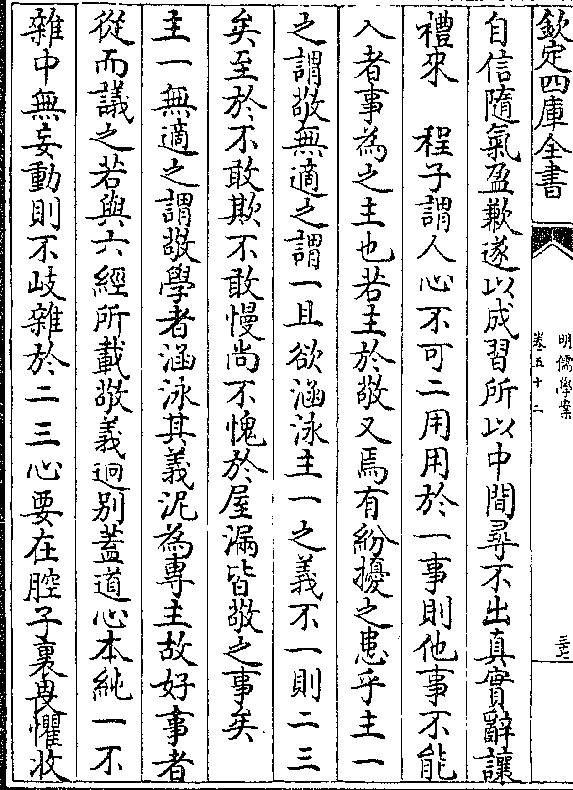 欽定四庫全書
明儒學案
卷五十二
三十三
自信隨氣盈歉遂以成習所以中間尋不出真實辭讓
禮來　程子謂人心不可二用用於一事則他事不能
入者事為之主也若主於敬又焉有紛擾之患乎主一
之謂敬無適之謂一且欲涵泳主一之義不一則二三
矣至於不敢欺不敢慢尚不愧於屋漏皆敬之事矣
主一無適之謂敬學者涵泳其義泥為專主故好事者
從而議之若與六經所載敬義迥别蓋道心本純一不
雜中無妄動則不岐雜於二三心要在腔子裏畏懼收